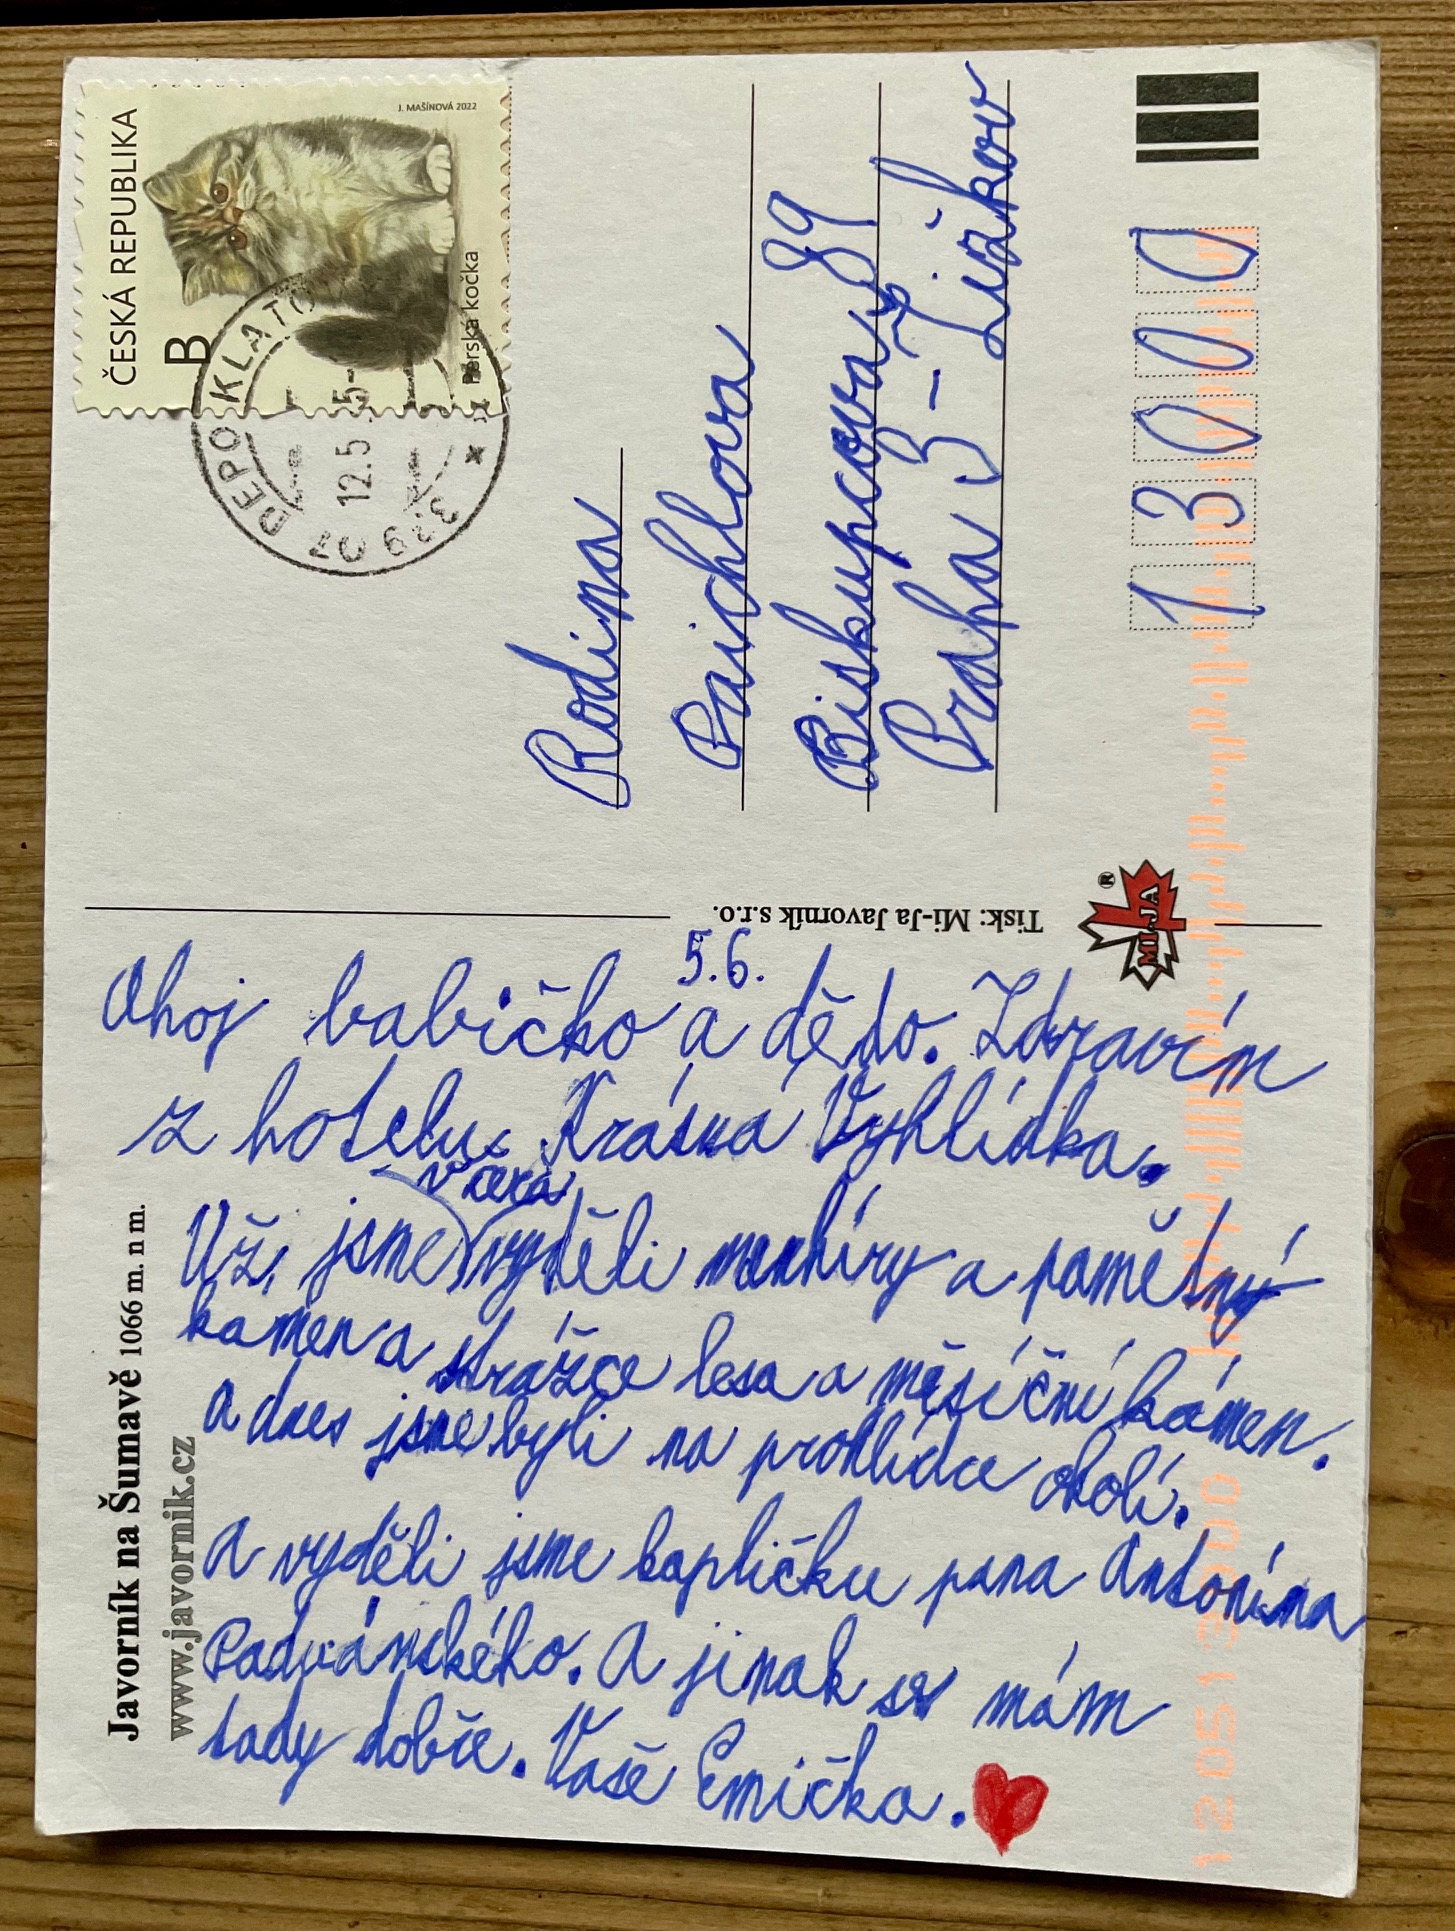 ČESKÁ REPUBLIKA
B
J. MAŠÍNOVÁ 2022
Perská kočka
DEPO KLATOV
12.5
339 07
Rodina
Paichlova
Biskupcova 89
Praha 3 - Žižkov
13000
Tisk: Mi-Ja Javorník s.r.o.
MI-JA
®
Javorník na Šumavě 1066 m. n m.
www.javornik.cz
5.6.
Ahoj babičko a dědo. Zdravím
z hotelu Krásná Vyhlídka.
včera
Už jsme vyděli menhíry a pamětný
kámen a strážce lesa a měsíční kámen.
A dnes jsme byli na prohlídce okolí.
A vyděli jsme kapličku pana Antonína
Padvánského. A jinak se mám
tady dobře. Vaše Emička.